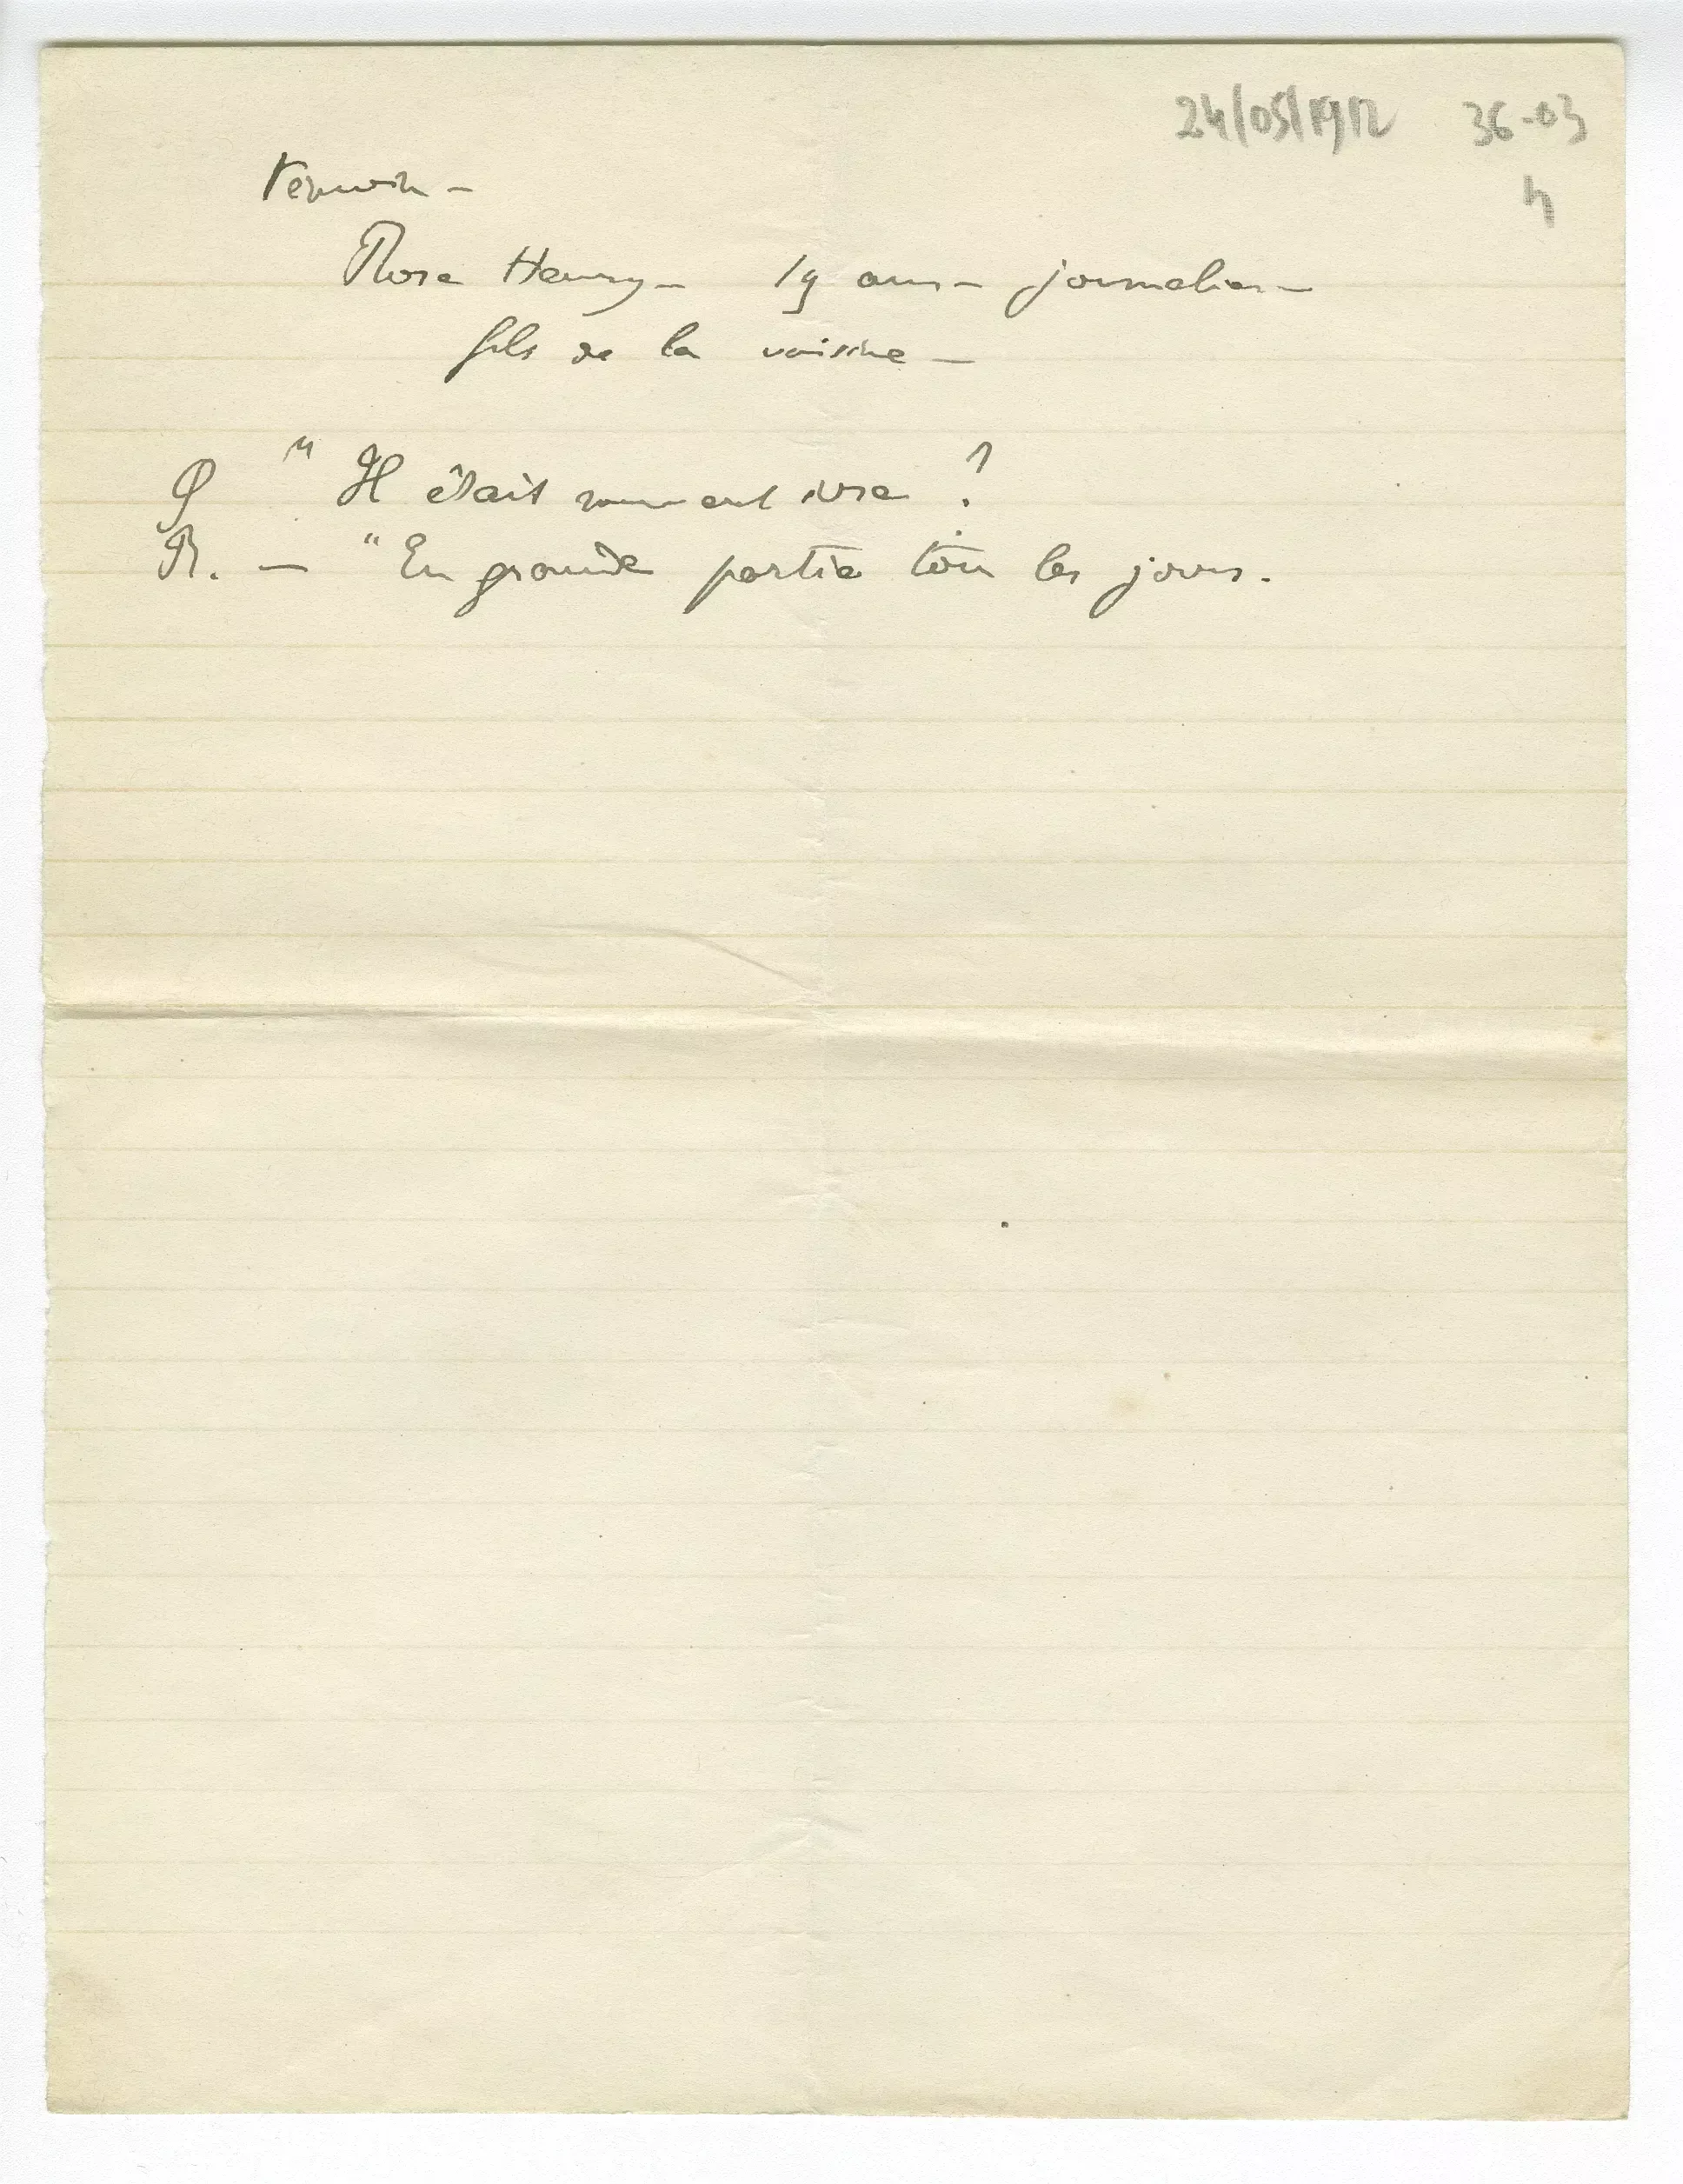 24/05/1912 36-03
4
Témoin -
Henry - 19 ans - journalier -
fils de la voisine -
Q " Il était souvent ivre ?
R. - " En grande partie tous les jours.